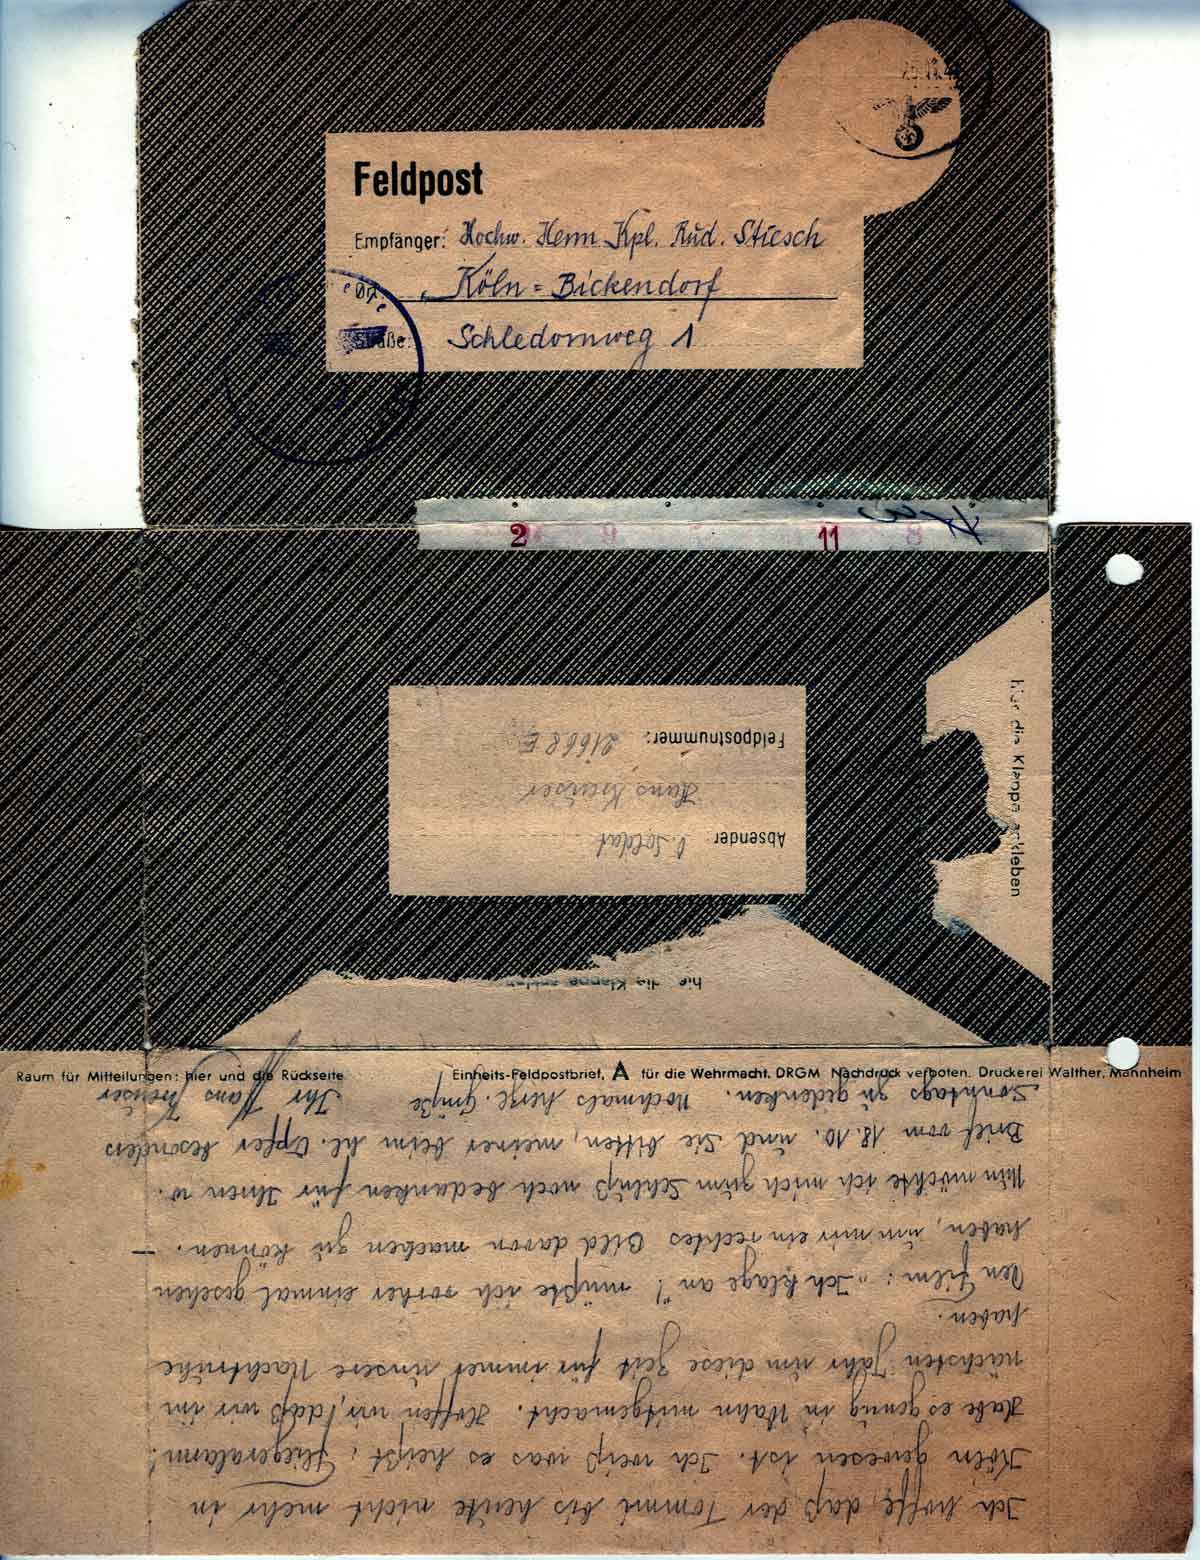 25.11.4
Feldpost
Empfänger: Hochw. Herrn Kpl. Rud. Stiesch
Ort: Köln=Bickendorf
Straße: Schledornweg 1
2 9 11 8
hier die Klappe ankleben
Absender: S. Soldat
Hans Kreuser
Feldpostnummer: 21668 E
hier die Klappe ankleben
Raum für Mitteilungen: hier und die Rückseite
Einheits-Feldpostbrief, A für die Wehrmacht. DRGM Nachdruck verboten. Druckerei Walther, Mannheim
Ich hoffe, daß der Tommi bis heute nicht mehr in
Köln gewesen ist. Ich weiß was es heißt, Fliegeralarm!
Habe es genug in Wahn mitgemacht. Hoffen wir, daß wir im
nächsten Jahr um diese Zeit für immer unsere Nachtruhe
haben.
Den Film: „Ich klage an“! müßte ich vorher einmal gesehen
haben, um mir ein rechtes Bild davon machen zu können. –
Nun möchte ich mich zum Schluß noch bedanken für Ihnen w.
Brief vom 18.10. und Sie bitten, meiner beim hl. Opfer besonders
Sonntags zu gedenken. Nochmals herzl. Grüße
Ihr Hans Kreuser